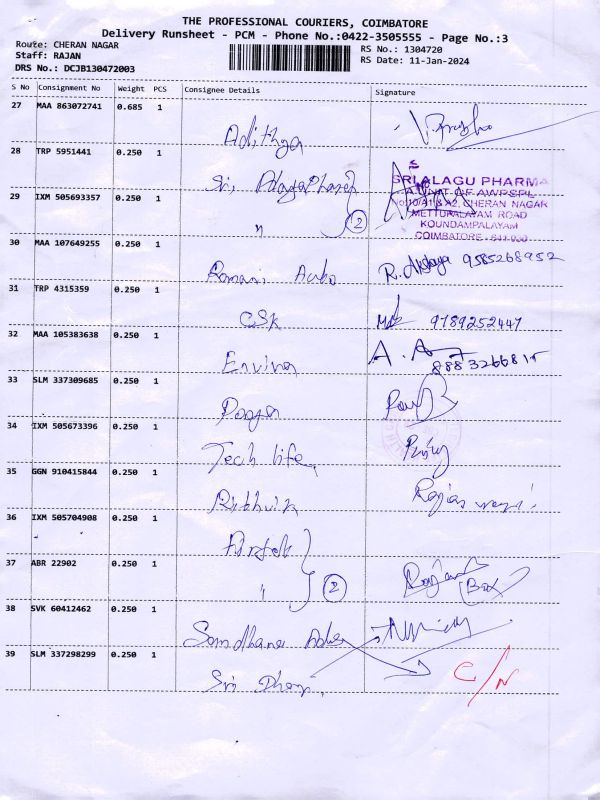 THE PROFESSIONAL COURIERS, COIMBATORE
Delivery Runsheet - PCM - Phone No.:0422-3505555 - Page No.:3
Route: CHERAN NAGAR
Staff: RAJAN
DRS No.: DCJB130472003
RS No.: 1304720
RS Date: 11-Jan-2024
S No Consignment No Weight PCS Consignee Details Signature
27 MAA 863072741 0.685 1
Adithya
28 TRP 5951441 0.250 1
Sri
SRI ALAGU PHARMA
A UNIT OF AWPSPL
No:10/A1 & A2, CHERAN NAGAR
METTUPALAYAM ROAD
KOUNDAMPALAYAM
COIMBATORE
29 IXM 505693357 0.250 1
" 2
30 MAA 107649255 0.250 1
R. Akshaya 9585268952
31 TRP 4315359 0.250 1
CSK 9789252447
32 MAA 105383638 0.250 1
A. A
33 SLM 337309685 0.250 1
34 IXM 505673396 0.250 1
Tech life
35 GGN 910415844 0.250 1
Rithvik
36 IXM 505704908 0.250 1
37 ABR 22902 0.250 1
" 2 (Box)
38 SVK 60412462 0.250 1
39 SLM 337298299 0.250 1
Sri C/N